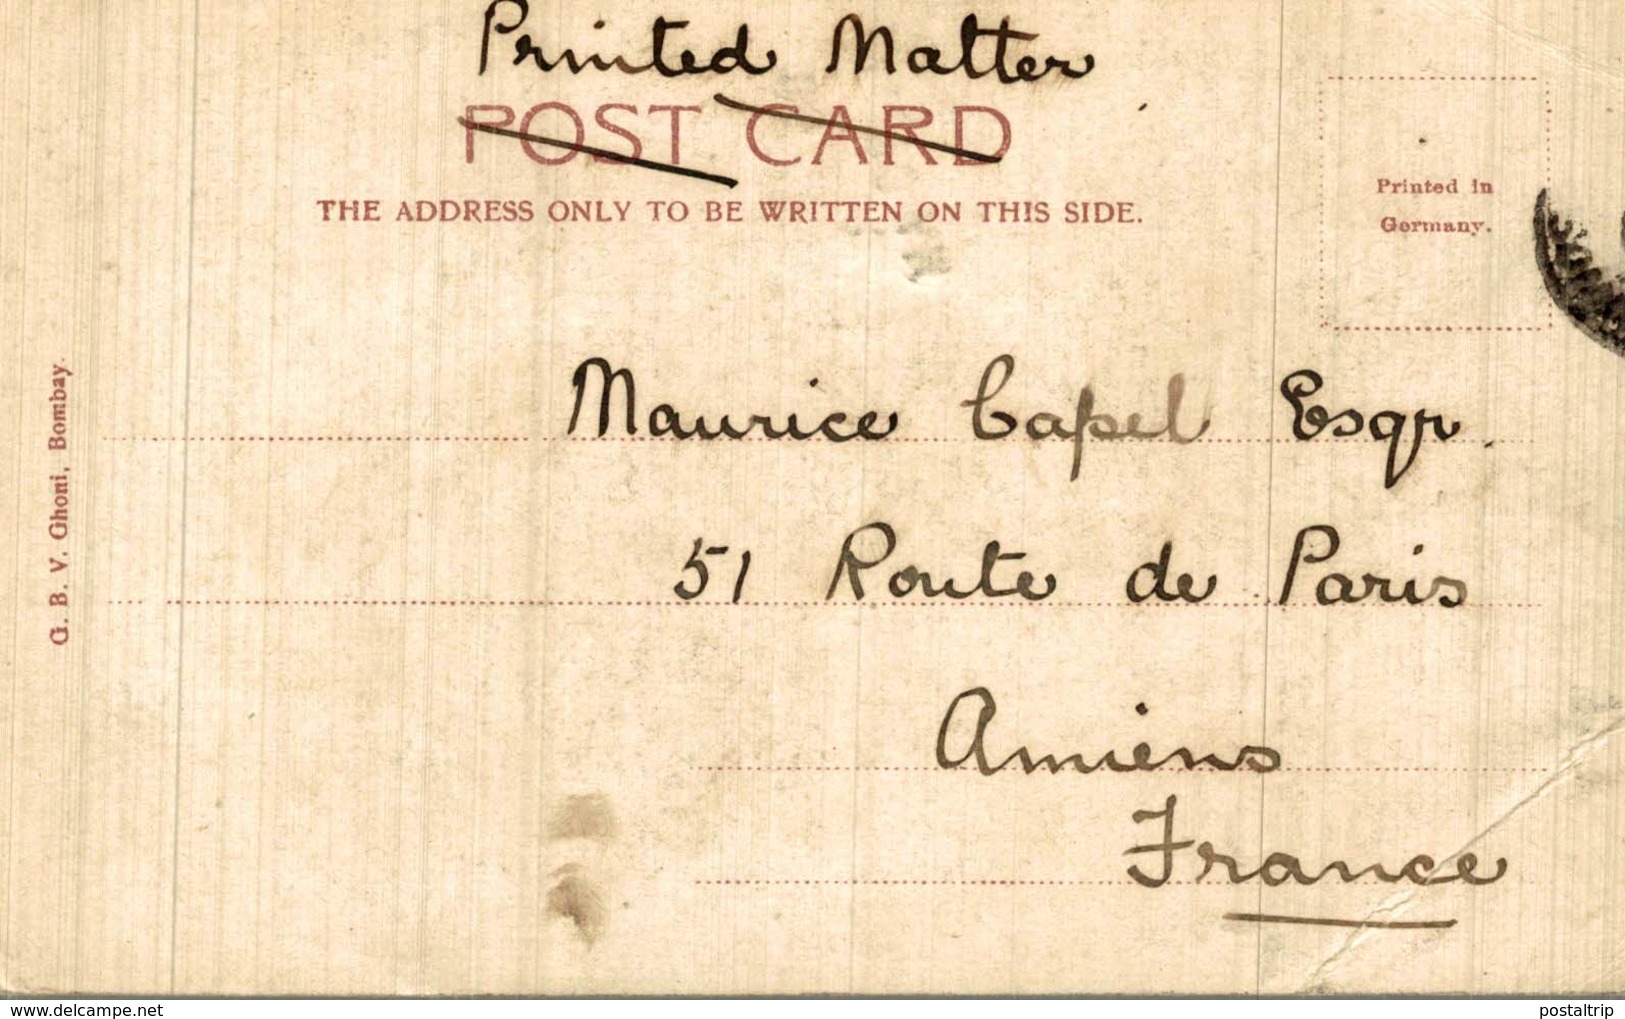 Printed Matter
POST CARD
THE ADDRESS ONLY TO BE WRITTEN ON THIS SIDE.
Printed in
Germany.
G. B. V. Ghoni, Bombay.
Maurice Capel Esqr.
51 Route de Paris
Amiens
France
www.delcampe.net
postaltrip